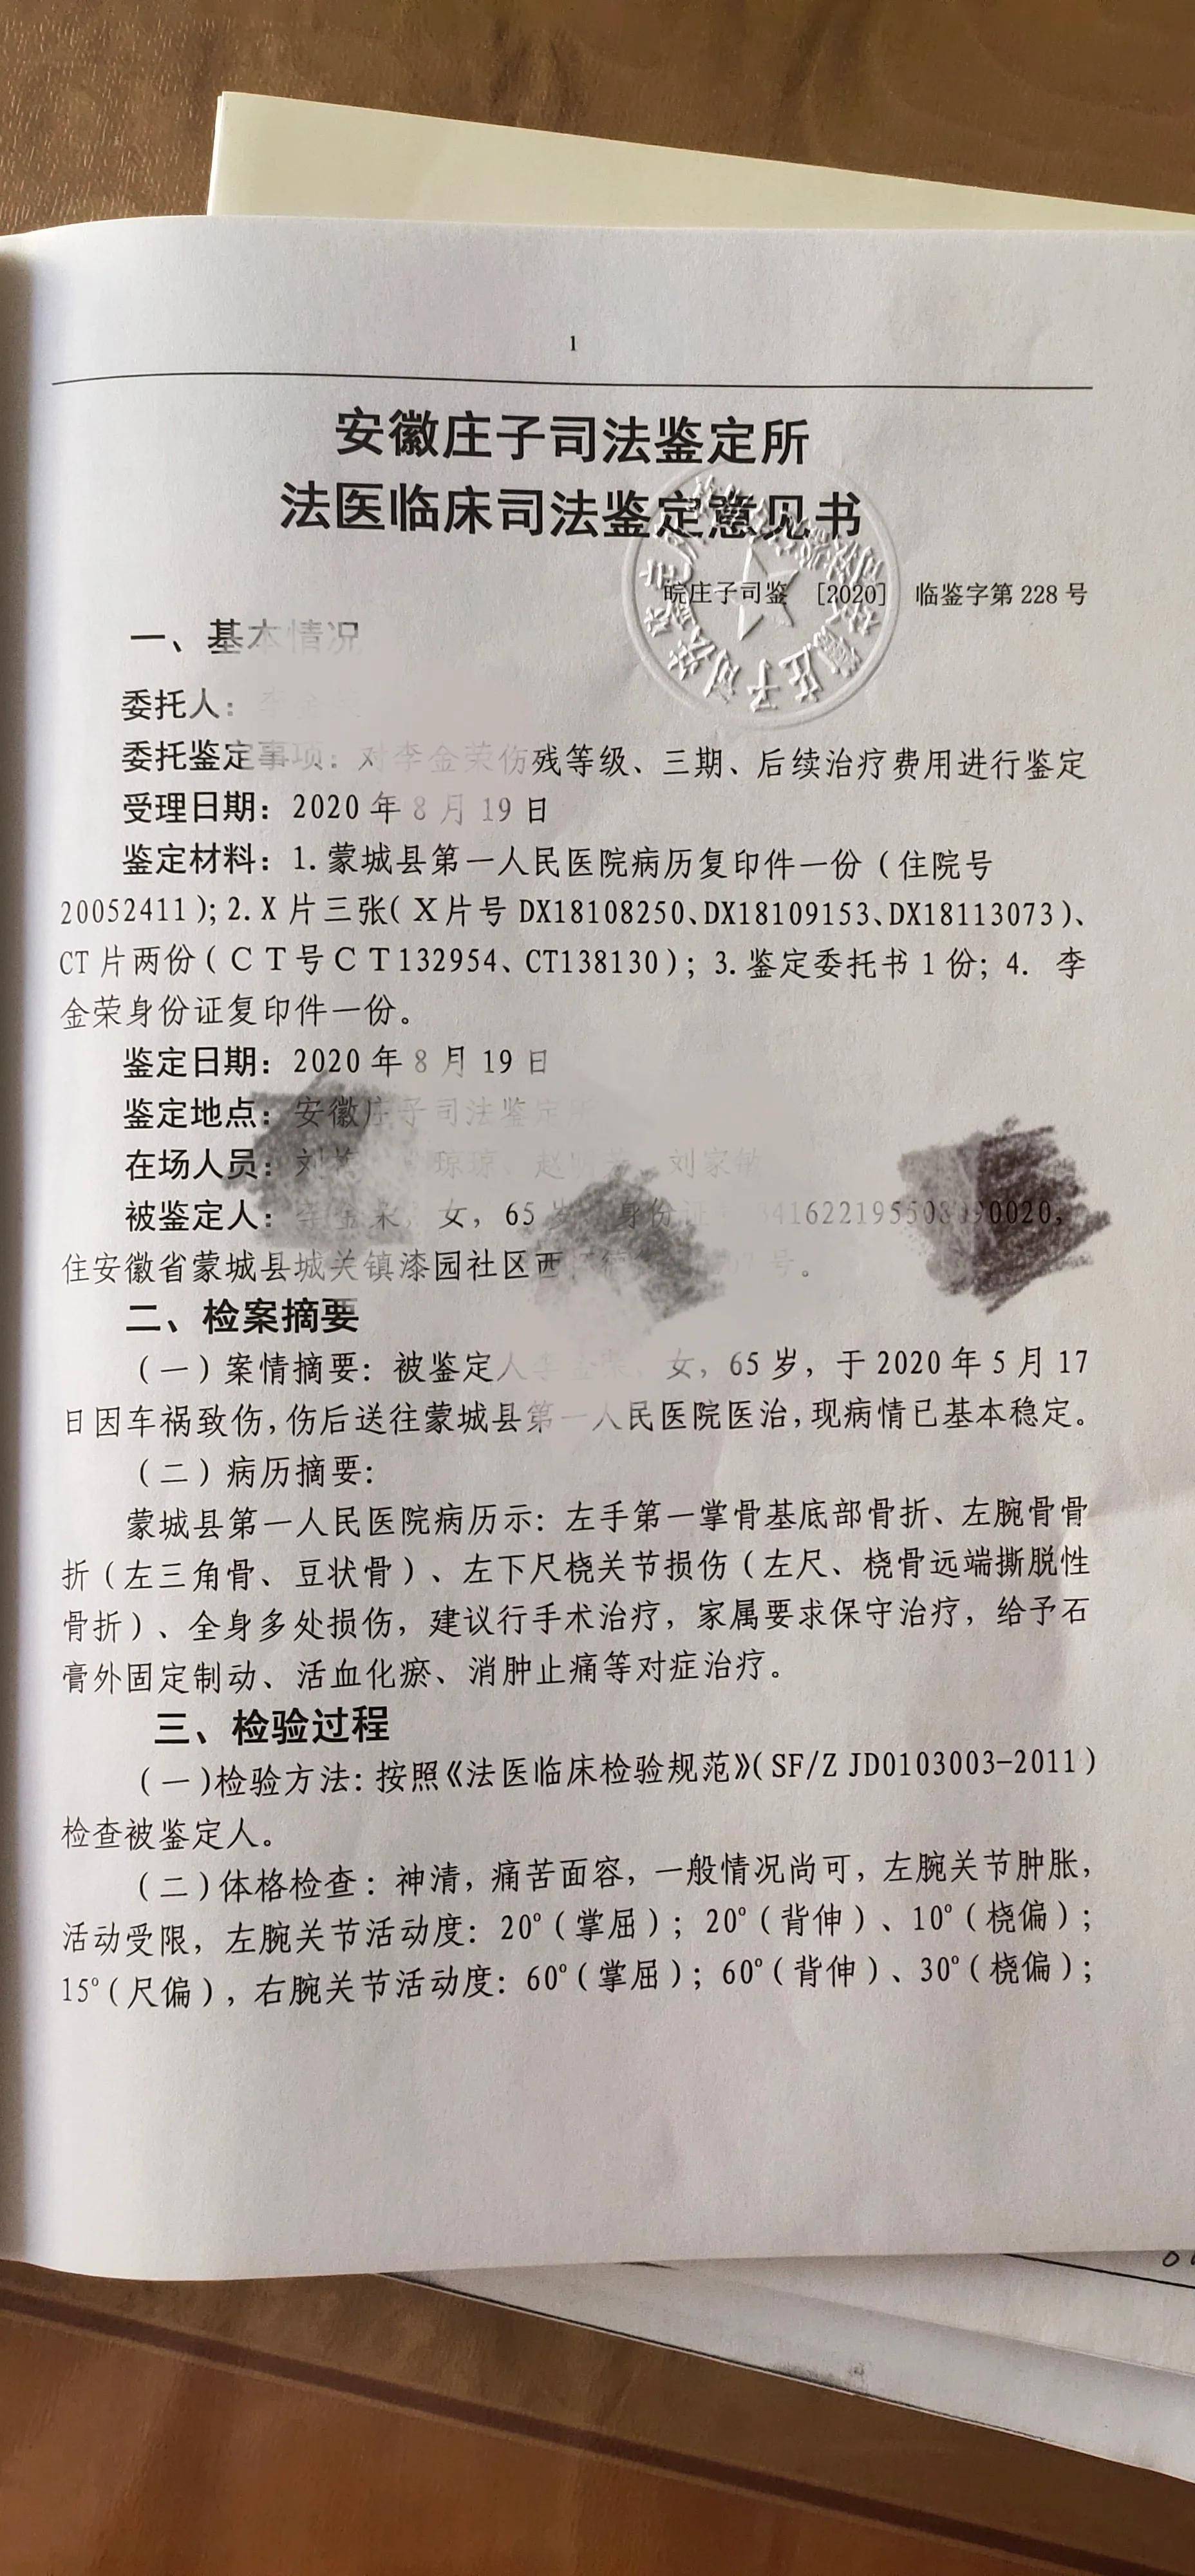 1
安徽庄子司法鉴定所
法医临床司法鉴定意见书
皖庄子司鉴 [2020] 临鉴字第 228 号
一、基本情况
委托人:
委托鉴定事项: 对李金荣伤残等级、三期、后续治疗费用进行鉴定
受理日期: 2020 年 8 月 19 日
鉴定材料: 1. 蒙城县第一人民医院病历复印件一份 (住院号
20052411); 2. X 片三张( X 片号 DX18108250、DX18109153、DX18113073)、
CT 片两份 ( C T 号 C T 132954、CT138130) ; 3. 鉴定委托书 1 份; 4. 李
金荣身份证复印件一份。
鉴定日期: 2020 年 8 月 19 日
鉴定地点: 安徽庄子司法鉴定
在场人员:
被鉴定人: 女, 65
住安徽省蒙城县城关镇漆园社区西 号。
二、检案摘要
(一) 案情摘要: 被鉴定人 女, 65 岁, 于 2020 年 5 月 17
日因车祸致伤, 伤后送往蒙城县第一人民医院医治, 现病情已基本稳定。
(二) 病历摘要:
蒙城县第一人民医院病历示: 左手第一掌骨基底部骨折、左腕骨骨
折 (左三角骨、豆状骨) 、左下尺桡关节损伤 (左尺、桡骨远端撕脱性
骨折) 、全身多处损伤, 建议行手术治疗, 家属要求保守治疗, 给予石
膏外固定制动、活血化瘀、消肿止痛等对症治疗。
三、检验过程
(一)检验方法: 按照《法医临床检验规范》(SF/Z JD0103003-2011)
检查被鉴定人。
(二)体格检查: 神清, 痛苦面容, 一般情况尚可, 左腕关节肿胀,
活动受限, 左腕关节活动度: 20°(掌屈) ; 20°(背伸) 、10°(桡偏) ;
15°(尺偏) , 右腕关节活动度: 60°(掌屈) ; 60°(背伸) 、30°(桡偏) ;